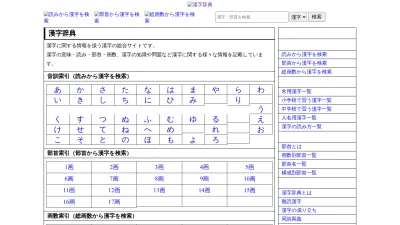 漢字辞典
読みから漢字を検索
部首から漢字を検索
総画数から漢字を検索
漢字・部首を検索
漢字
検索
漢字辞典
漢字に関する情報を扱う漢字の総合サイトです。
漢字の意味・読み・部首・画数、漢字の知識や問題など漢字に関する様々な情報を記載しています。
音訓索引（読みから漢字を検索）
あ か さ た な は ま や ら わ
い き し ち に ひ み り
う
く す つ ぬ ふ む ゆ る
け せ て ね へ め れ え
こ そ と の ほ も よ ろ お
部首索引（部首から漢字を検索）
1画 2画 3画 4画 5画
6画 7画 8画 9画 10画
11画 12画 13画 14画 15画
16画 17画
画数索引（総画数から漢字を検索）
読みから漢字を検索
部首から漢字を検索
総画数から漢字を検索
常用漢字一覧
小学校で習う漢字一覧
中学校で習う漢字一覧
人名用漢字一覧
漢字の読み方一覧
部首とは
画数別部首一覧
部首名一覧
構成別部首一覧
漢字辞典とは
難読漢字
漢字の成り立ち
同訓異義